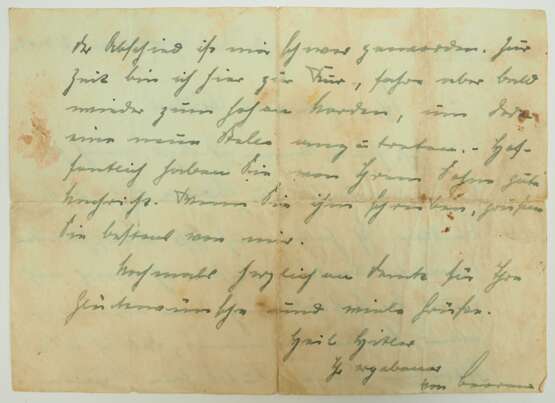 der Abschied ist mir schwer geworden. Zur
Zeit bin ich hier zur Kur, fahre aber bald
wieder zum hohen Norden, um dort
eine neue Stelle anzutreten. - Hof-
fentlich haben Sie von Ihrem Sohn gute
Nachricht. Wenn Sie ihm schreiben, grüßen
Sie bestens von mir.
Nochmals herzlichen Dank für Ihre
Glückwünsche und viele Grüße.
Heil Hitler
Ihr ergebener
von